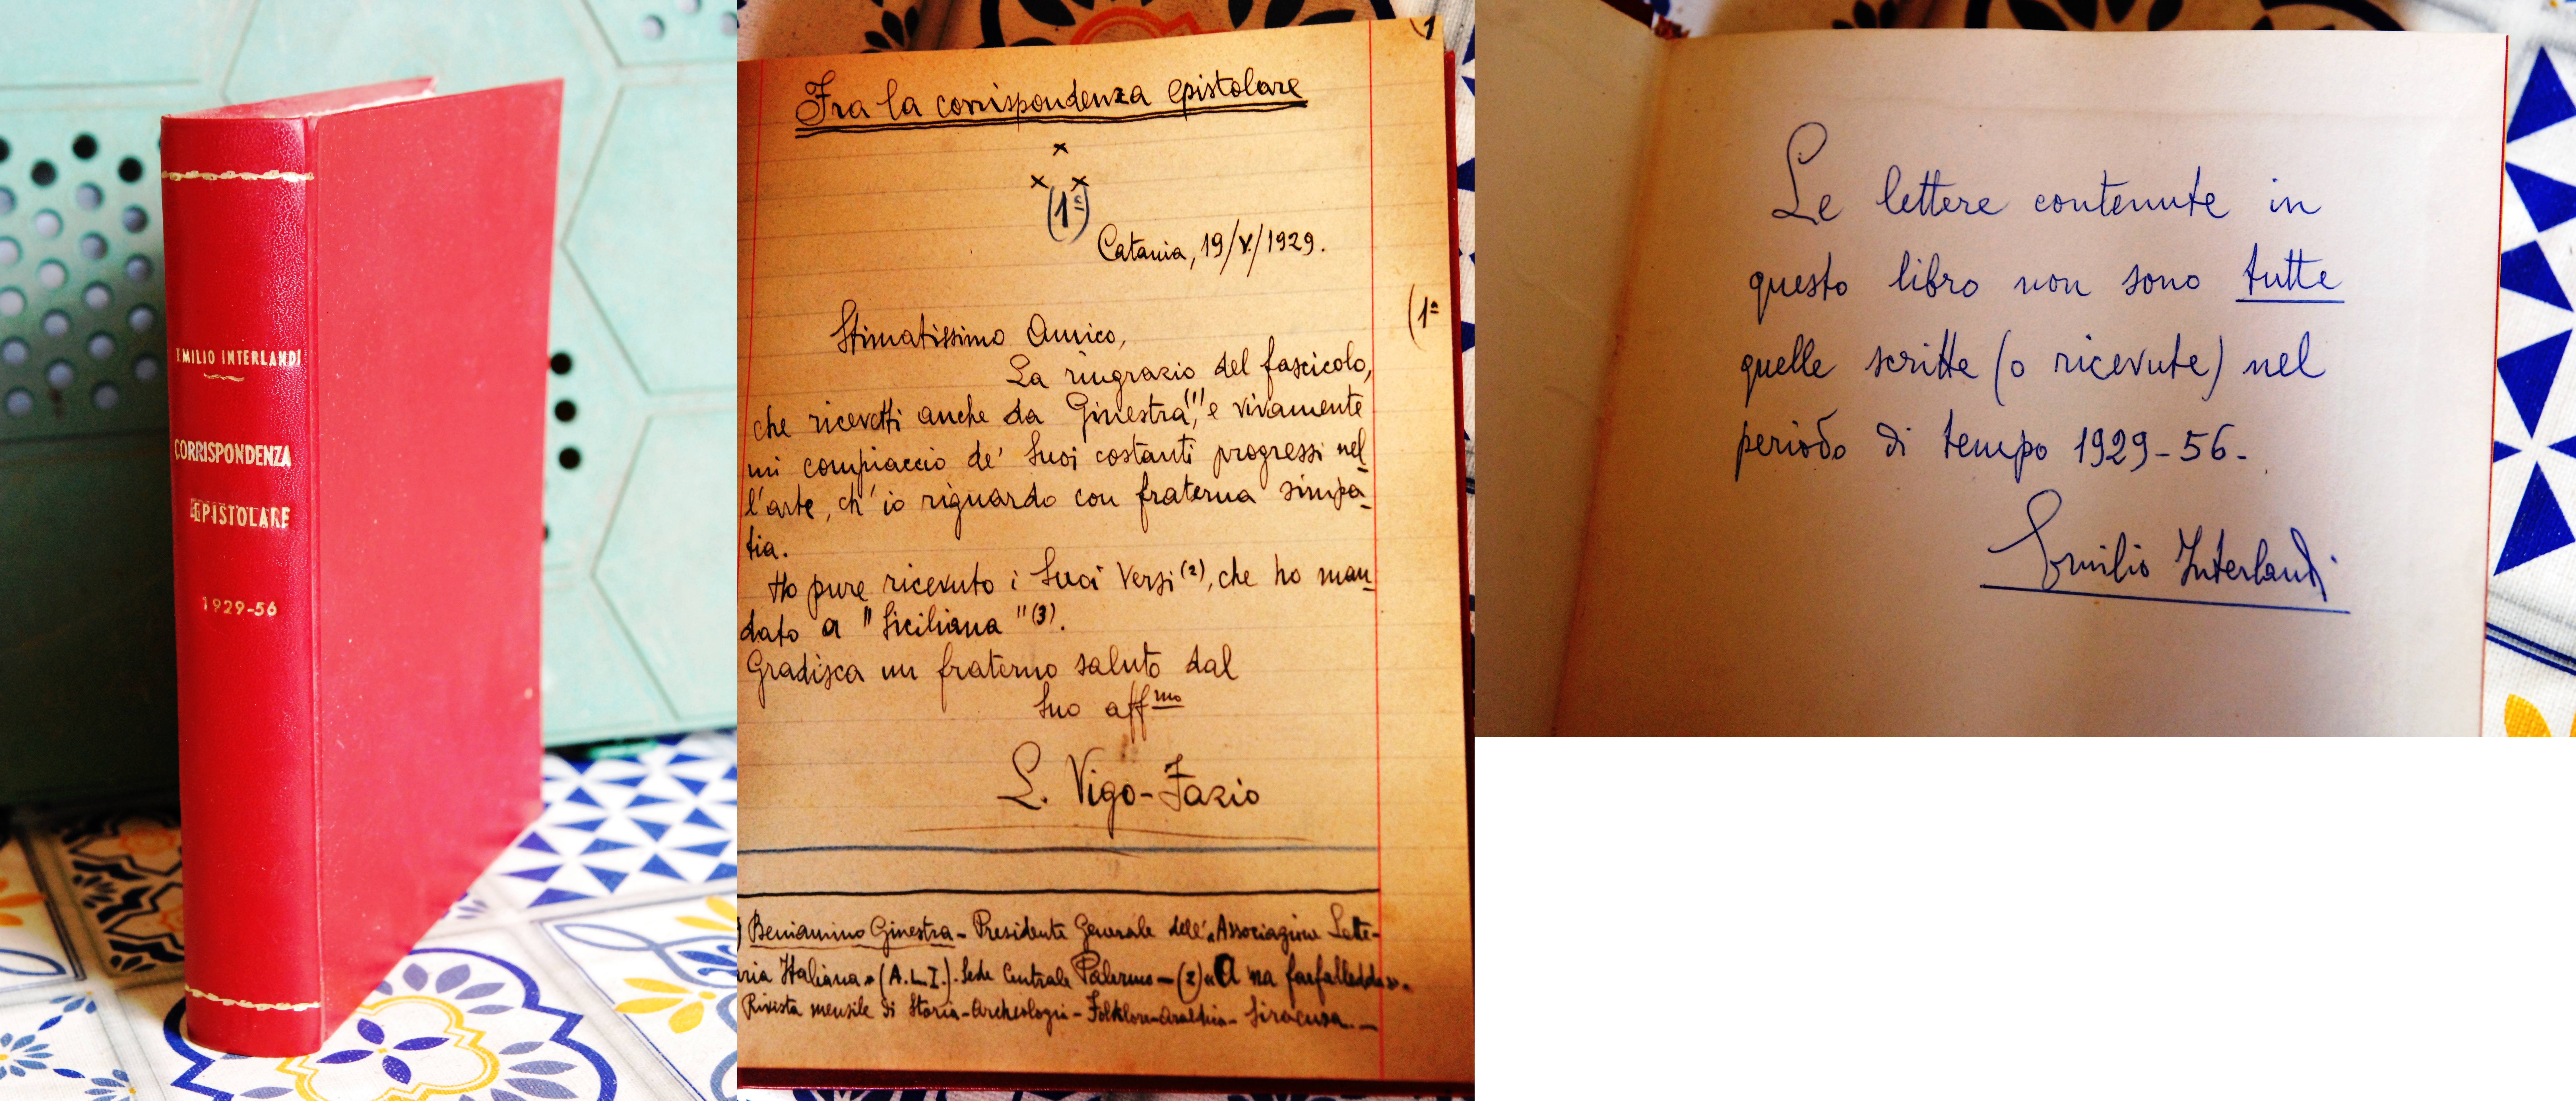 EMILIO INTERLANDI
CORRISPONDENZA
EPISTOLARE
1929-56
1
Fra la corrispondenza epistolare
(1ª)
Catania, 19/V./1929.
(1ª
Stimatissimo Amico,
La ringrazio del fascicolo,
che ricevetti anche da Ginestra(1), e vivamente
mi compiaccio de' Suoi costanti progressi nel
l'arte, ch'io riguardo con fraterna simpa
tia.
Ho pure ricevuto i Suoi Versi (2), che ho man
dato a "Siciliana" (3).
Gradisca un fraterno saluto dal
Suo affmo
L. Vigo-Fazio
) Beniamino Ginestra - Presidente Generale dell'«Associazione Lette-
ria Italiana» (A.L.I.). Sede Centrale Palermo - (2) «A 'na farfalledda».
Rivista mensile di Storia - Archeologia - Folklore - Araldica - Siracusa. -
Le lettere contenute in
questo libro non sono tutte
quelle scritte (o ricevute) nel
periodo di tempo 1929-56-
Emilio Interlandi